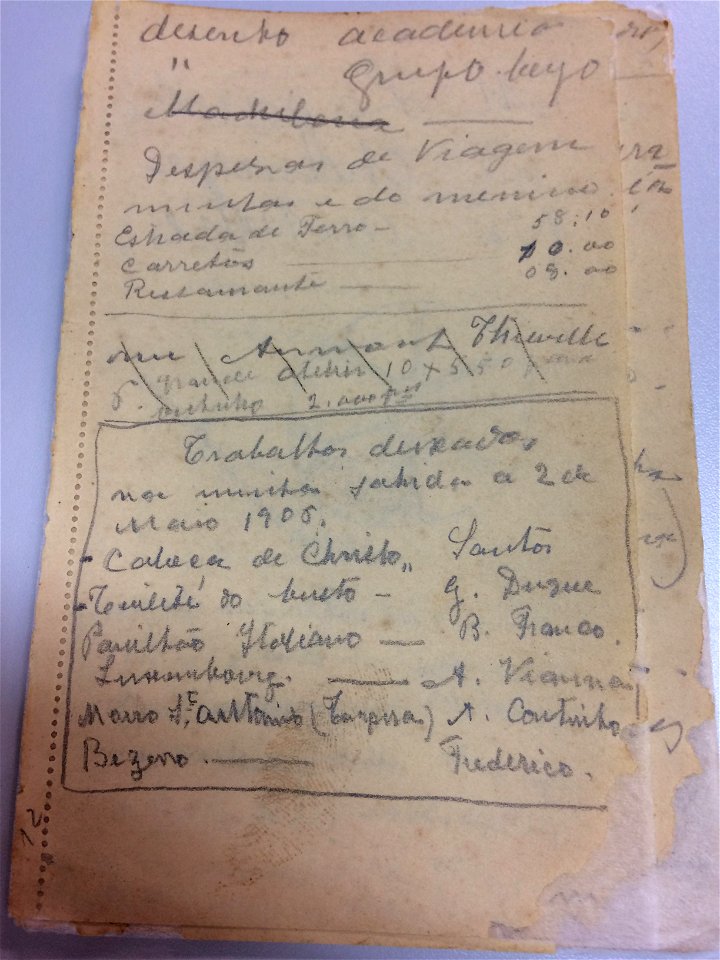 desenho academia
" grupo beyo
Despezas de Viagem
minhas e do menino
Estrada de Ferro - 58.10
Carretos 10.00
Restaurante 08.00
rue Armand Thieville
grande atelier 10 x 5,50
2.000
Trabalhos deixados
na minha sahida a 2 de
Maio 1906.
- Cabeça de Christo „ Santos
- Toilete do busto - G. Duque
Pavilhão Italiano — B. Franco.
Luxembourg. — A. Vianna
Morro Sto Antonio (Tempera) A. Coutinho
Bezerro. — Frederico.
12